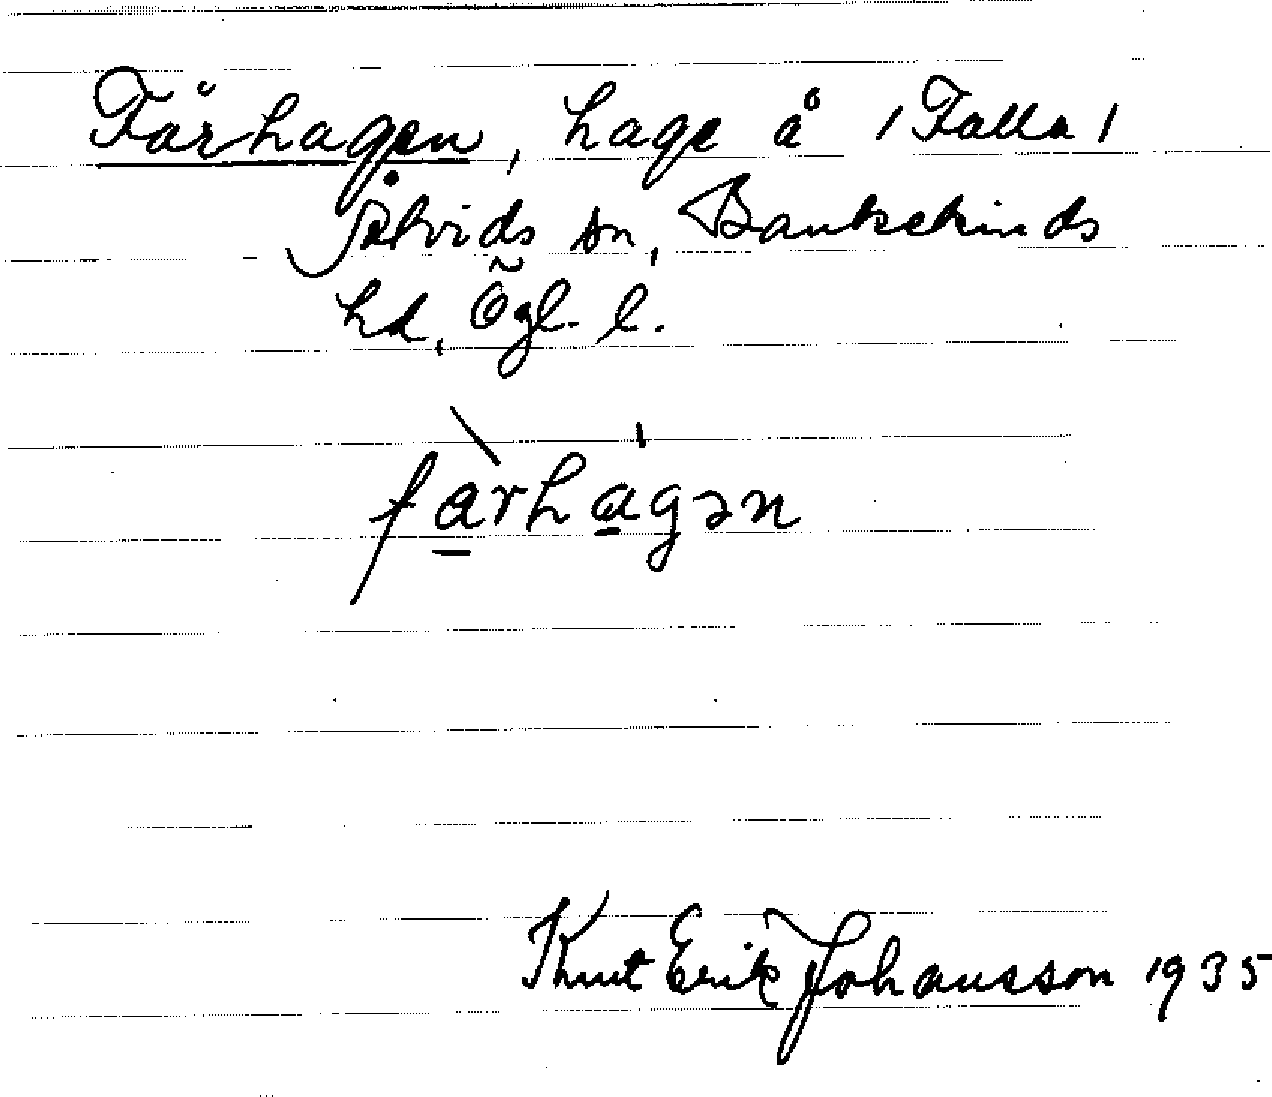 Fårhagen, hage å /Falla/
Åtvids sn, Bankekinds
hd, Ögl. l.
fàrhágən
Knut Erik Johansson 1935